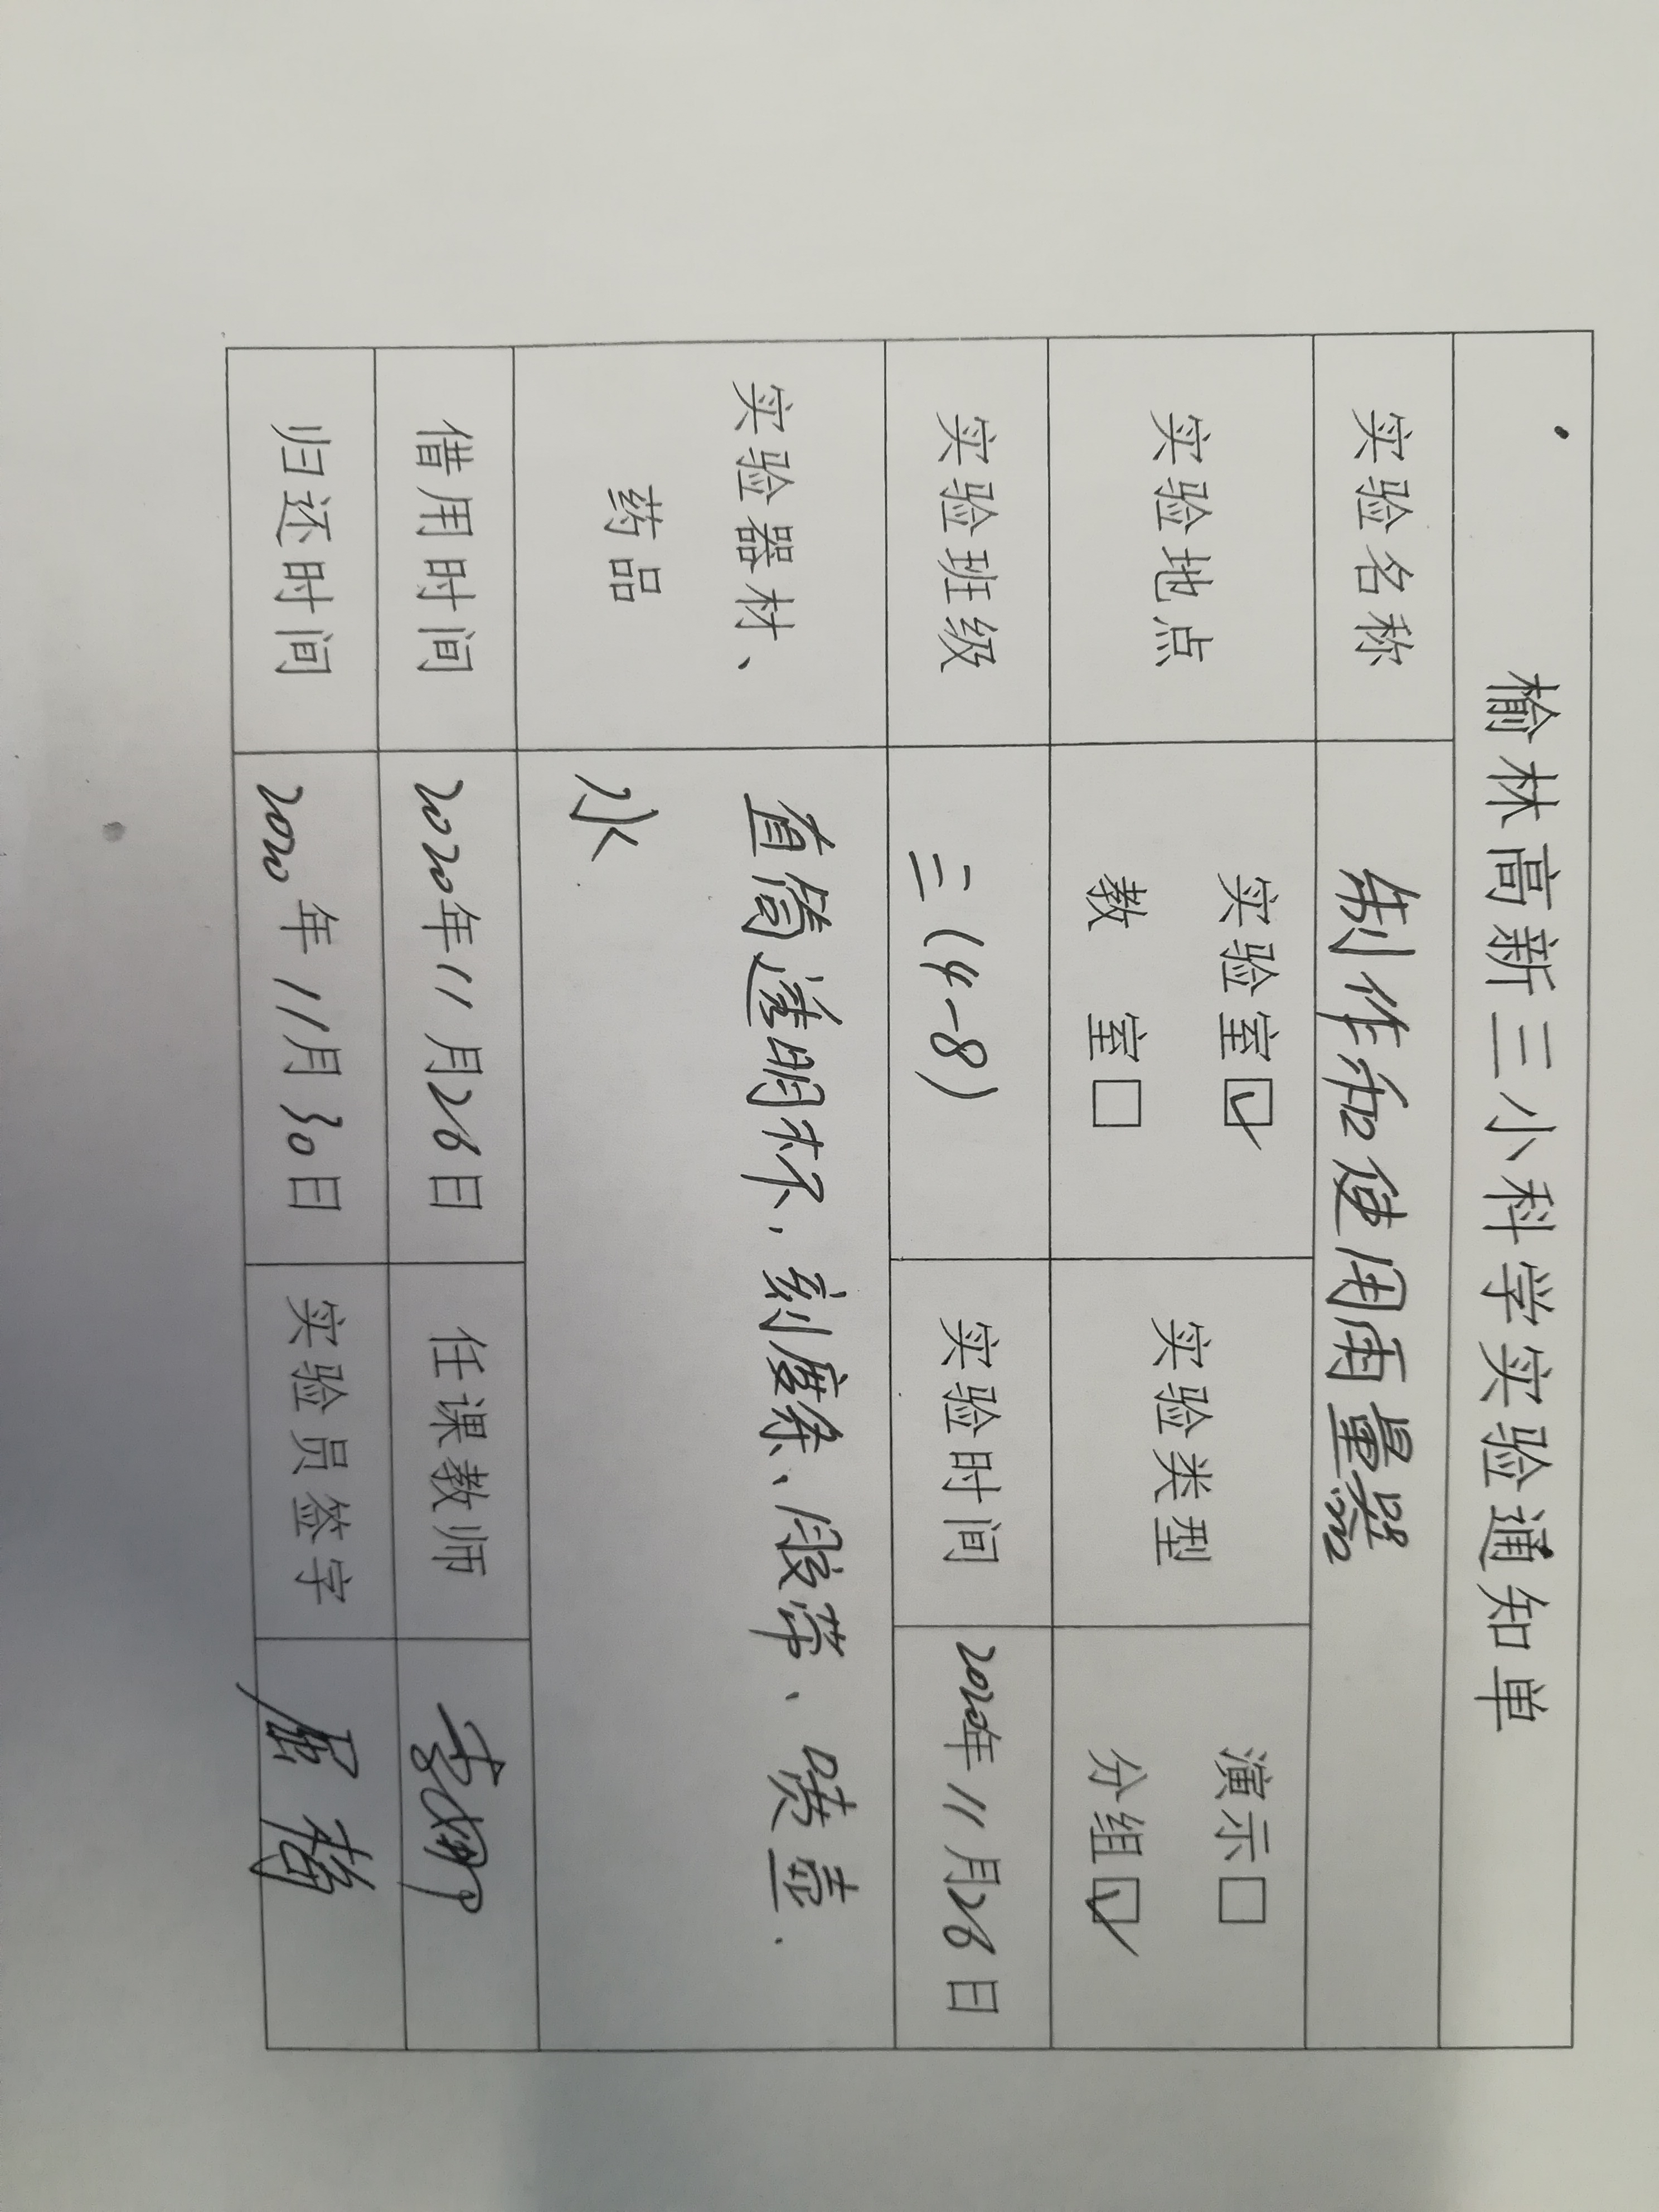 榆林高新三小科学实验通知单
实验名称 制作和使用雨量器
实验地点 实验室☑ 实验类型 演示□
教 室□ 分组☑
实验班级 三(4-8) 实验时间 2020年11月26日
实验器材、 直筒透明杯、刻度条、胶带、喷壶.
药品 水
借用时间 2020年11月26日 任课教师 李娜
归还时间 2020年11月30日 实验员签字